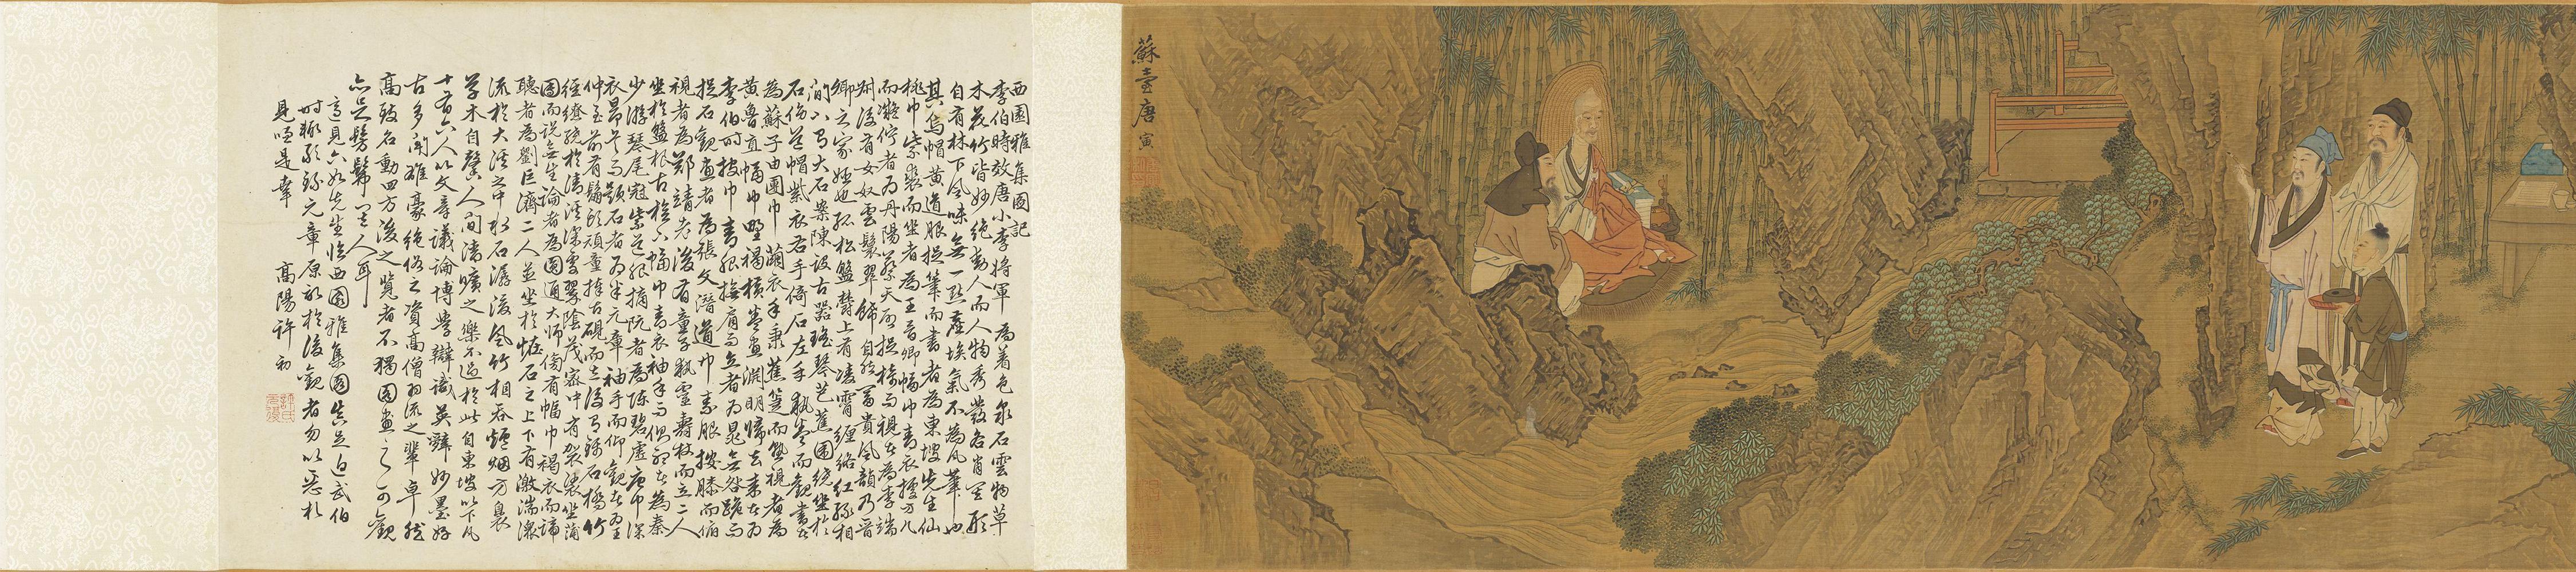 西園雅集圖記
李伯時效唐小李將軍為着色泉石雲物草
木花竹皆妙絕動人而人物秀發各肖其形
自有林下風味無一點塵埃氣不為凡筆也
其烏帽黃道服捉筆而書者為東坡先生仙
桃巾紫裘而坐者為王晉卿幅巾青衣據方几
而凝佇者為丹陽蔡天啟捉椅而視者為李端
叔後有女奴雲鬟翠飾自然富貴風韻乃晉
卿之家姬也孤松盤鬱上有凌霄纏絡紅綠相
間下有大石案陳設古器瑤琴芭蕉圍繞坐於
石傍道帽紫衣右手倚石左手執卷而觀書者
為蘇子由團巾繭衣手秉蕉箑而熟視者為
黃魯直幅巾野褐橫卷畫淵明歸去來者為
李伯時披巾青服撫肩而立者為晁無咎跪而
捉石觀畫者為張文潛道巾素服按膝而俯
視者為鄭靖老後有童子執靈壽杖而立二人
坐於盤根古檜下幅巾青衣袖手而側聽者為秦
少游琴尾冠紫道服摘阮者為陳碧虛唐巾深
衣昂首而題石者為米元章袖手而仰觀者為王
仲至前有鬅頭頑童捧古硯而立後有錦石橋竹
徑繚繞於清溪深處翠陰茂密中有袈裟坐蒲
團而說無生論者為圓通大師傍有幅巾褐衣而諦
聽者為劉巨濟二人並坐於怪石之上下有激湍潨
流於大溪之中水石潺湲風竹相吞爐烟方裊
草木自馨人間清曠之樂不過於此自東坡以下凡
十有六人以文章議論博學辯識英辭妙墨好
古多聞雄豪絕俗之資高僧羽流之輩卓然
高致名動四方後之覽者不獨圖畫之可觀
亦足髣髴其人耳
見六如先生臨西園雅集圖真足追武伯
時輒敢錄元章原敘於後觀者勿以惡札
見哂是幸 高陽許初
蘇臺唐寅